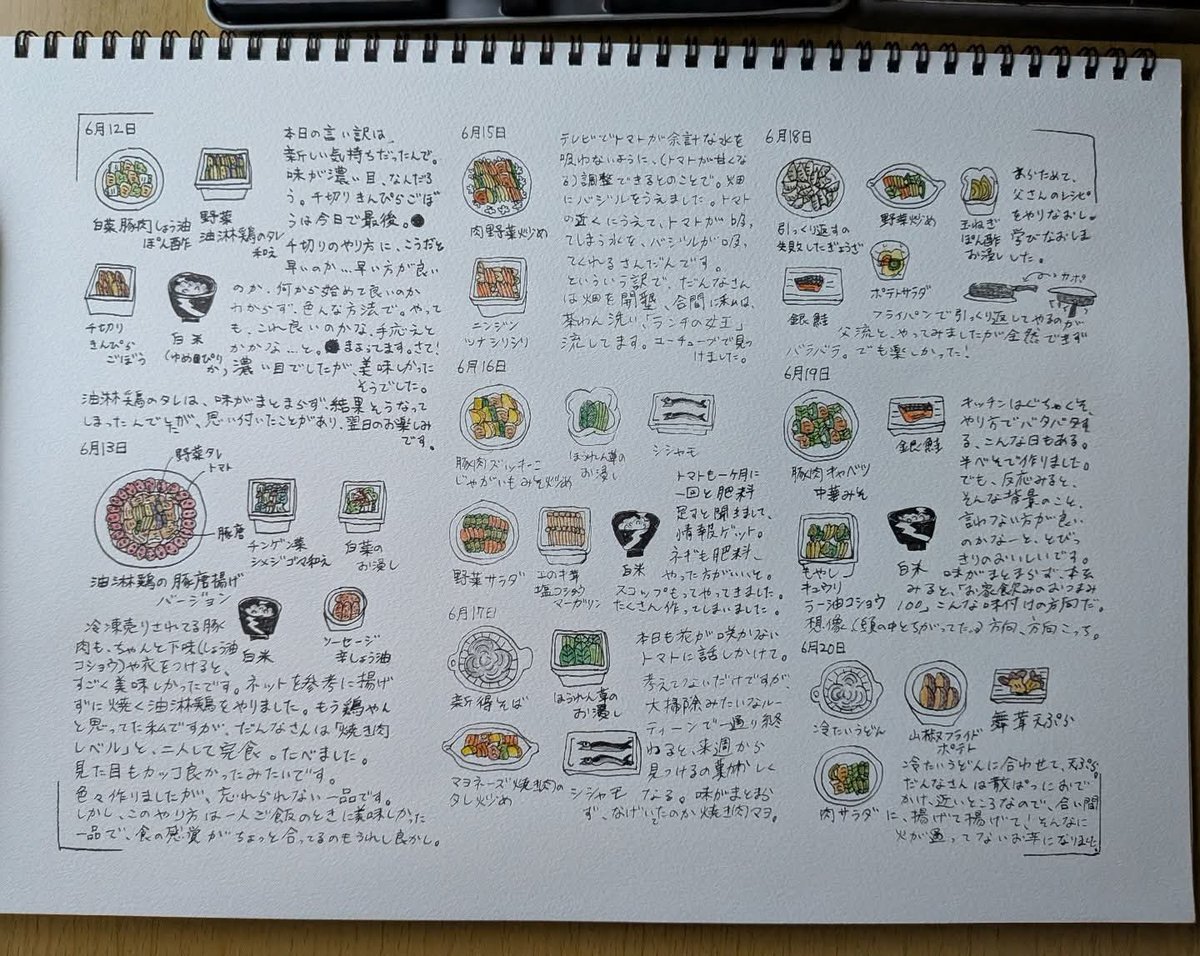 6月12日
白菜豚肉しょう油
ぽん酢
野菜
油淋鶏のタレ
和え
千切り
きんぴら
ごぼう
白米
本日の言い訳は、
新しい気持ちだったんで。
味が濃い目、なんだろ
う。千切りきんぴらごぼ
うは今日で最後。
千切りのやり方に、こうだと
早いのか…早い方が良い
のか、何から始めて良いのか
わからず、色んな方法で。やって
も、これ良いのかな、手応えと
かかな…と。まよってます。さて!
濃い目でしたが、美味しかった
そうでした。
油淋鶏のタレは、味がまとまらず、結果そうなって
しまったんですが、思い付いたことがあり、翌日のお楽しみ
です。
6月13日
野菜タレ
トマト
豚唐
油淋鶏の豚唐揚げ
バージョン
チンゲン菜
シメジゴマ和え
白菜の
お浸し
白米
ソーセージ
辛しょう油
冷凍売りされてる豚
肉も、ちゃんと下味(しょう油
コショウ)や衣をつけると、
すごく美味しかったです。ネットを参考に揚げ
ずに焼く油淋鶏をやりました。もう鶏やん
と思ってた私ですが、だんなさんは「焼き肉
レベル」と、二人して完食。たべました。
見た目もカッコ良かったみたいです。
色々作りましたが、忘れられない一品です。
しかし、このやり方は一人ご飯のときに美味しかった
一品で、食の感覚がちょっと合ってるのもうれし良かし。
6月15日
肉野菜炒め
ニンジン
ツナシリシリ
テレビでトマトが余計な水を
吸わないように、(トマトが甘くな
る)調整できるとのことで。畑
にバジルをうえました。トマト
の近くにうえて、トマトが吸っ
てしまう水を、バジルが吸っ
てくれるさんだんです。
というい訳で、だんなさん
は畑を開墾、合間に私は、
茶わん洗い、「ランチの女王」
流してます。ユーチューブで見つ
けました。
6月16日
豚肉ズッキーニ
じゃがいもみそ炒め
ほうれん草の
お浸し
シシャモ
野菜サラダ
エのき茸
塩コショウ
マーガリン
白米
トマトも一ヶ月に
一回と肥料
足すと聞きまして、
情報ゲット。
ネギも肥料、
やった方がいいと。
スコップもってやってきました。
たくさん作ってしまいました。
6月17日
新得そば
ほうれん草の
お浸し
マヨネーズ焼き肉の
タレ炒め
シシャモ
本日も花が咲かない
トマトに話しかけて。
考えてないだけですが、
大掃除みたいなルー
ティーンで一通り終
わると、来週から
見つけるの
なる。味がまとまら
ず、なげいてたのか焼き肉マヨ。
6月18日
引っくり返すの
失敗したぎょうざ
野菜炒め
玉ねぎ
ぽん酢
お浸し
銀鮭
ポテトサラダ
あらためて、
父さんのレシピ
をやりなおし。
学びなおしま
した。
カポ
フライパンで引っくり返してやるのが
父流と、やってみましたが全然できず
バラバラ。でも楽しかった!
6月19日
豚肉キャベツ
中華みそ
銀鮭
もやし
キュウリ
ラー油コショウ
白米
キッチンはぐちゃぐそ、
やり方でバタバタす
る、こんな日もある。
半べそで作りました。
でも、反応みると、
そんな背景のこと、
言わない方が良い
のかなーと、とびっ
きりのおいしいです。
味がまとまらず、本を
みると、「お家飲みのおつまみ
100」こんな味付けの方向だ。
想像く(頭の中とちがってた。)方向、方向こっち。
6月20日
冷たいうどん
山椒フライド
ポテト
舞茸天ぷら
肉サラダ
冷たいうどんに合わせて、天ぷら。
だんなさんは散ぱっにおで
かけ、近いところなので、合い間
に、揚げて揚げて!そんなに
火が通ってないお芋になりました